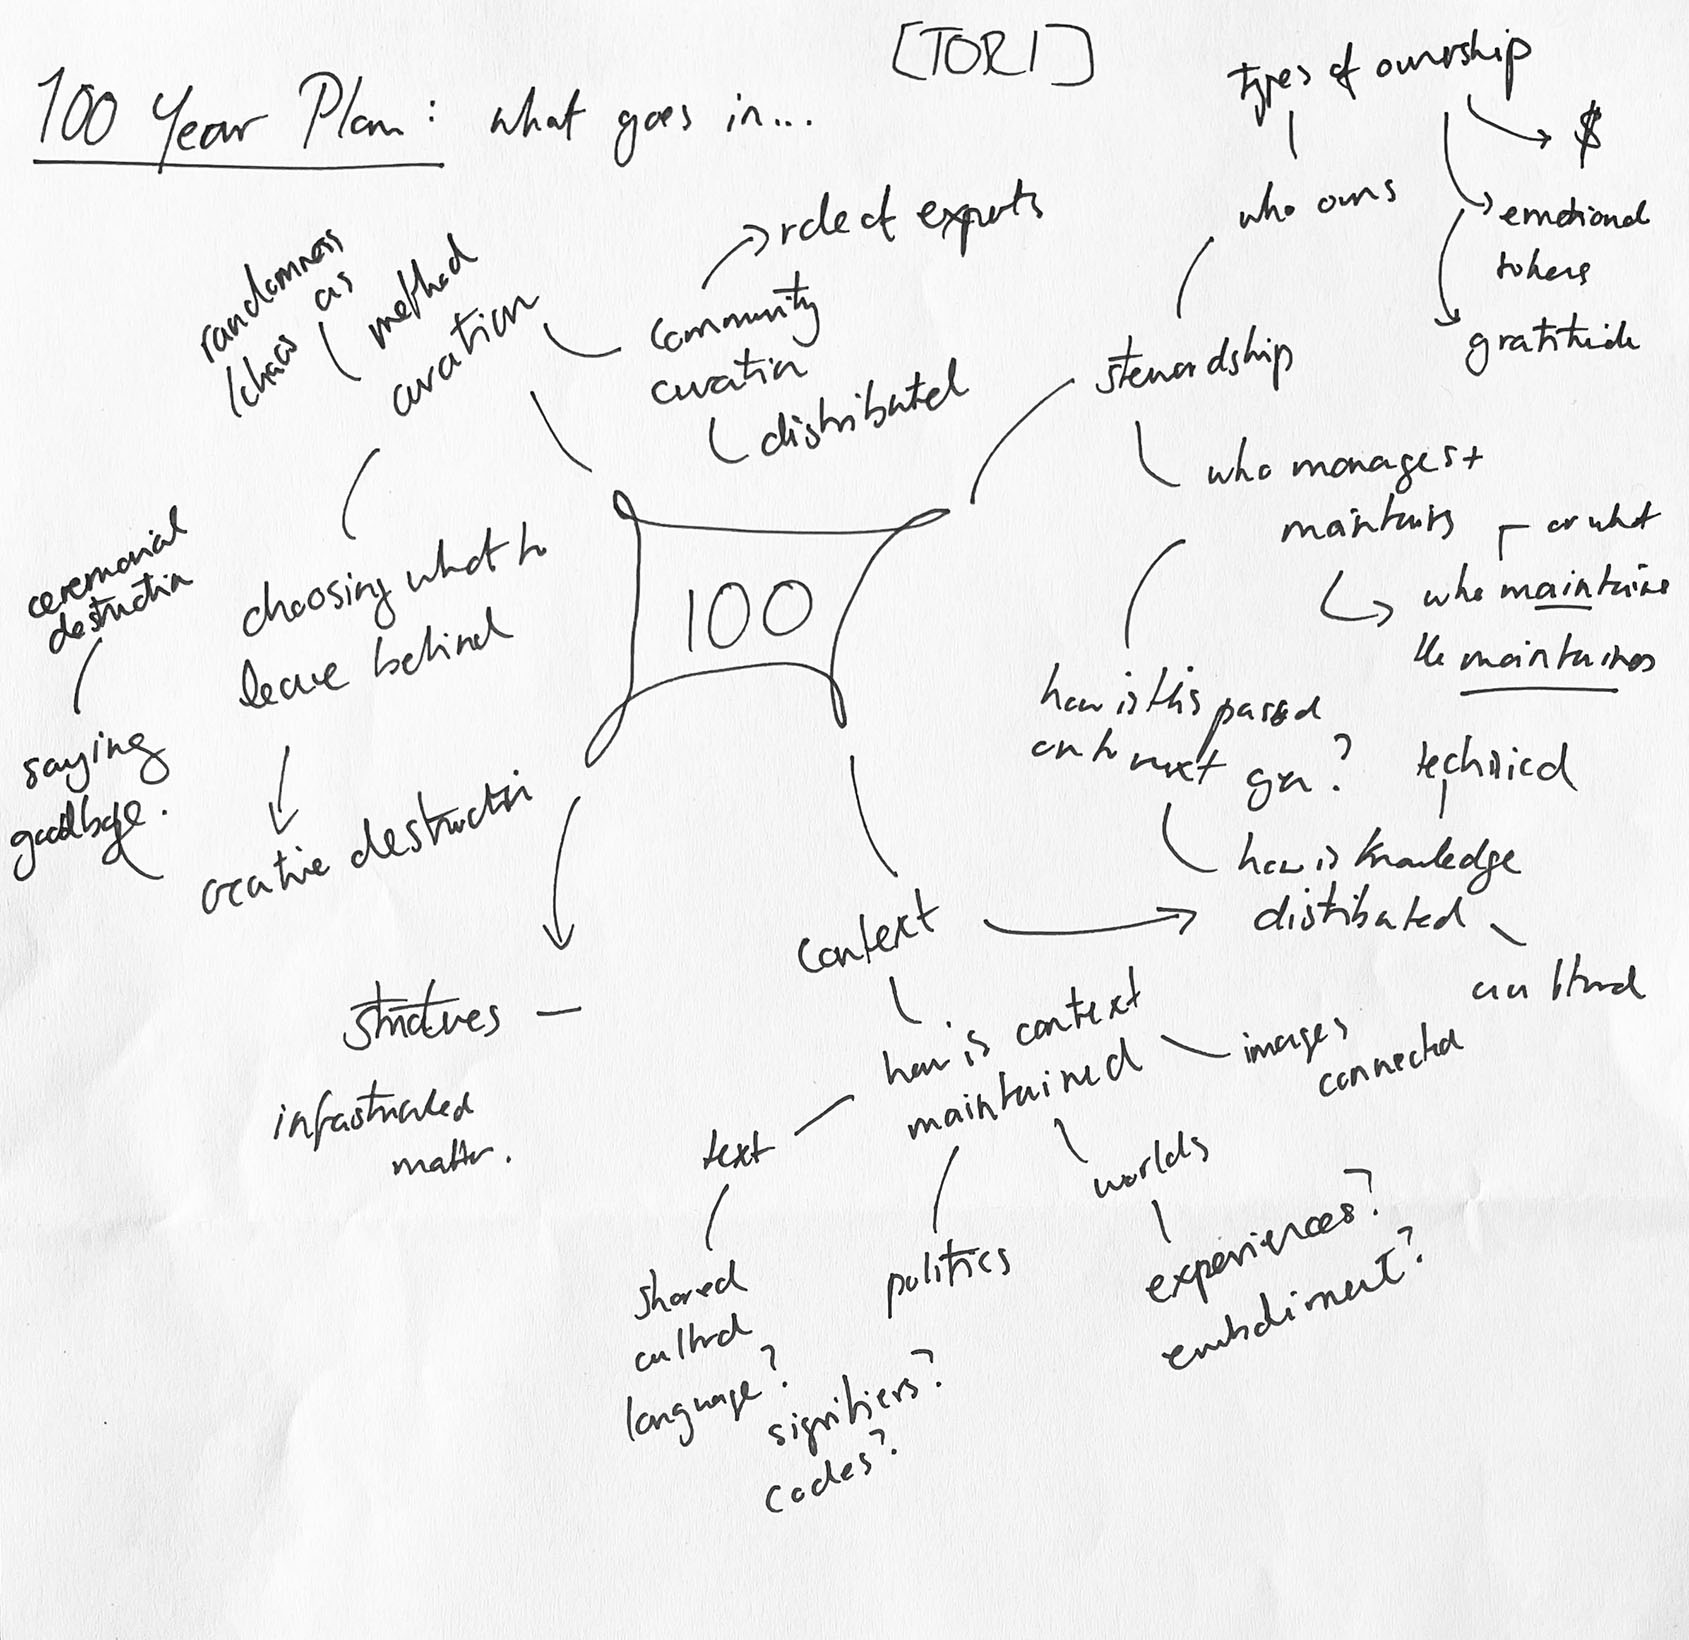 [TORI]
100 Year Plan: what goes in...
types of ownership
$
who owns
emotional
tokens
gratitude
stewardship
who manages +
maintains
or what
who maintains
the maintainers
how is this passed
on to next gen?
technical
how is knowledge
distributed
cultural
role of experts
community
curation
distributed
curation
randomness
/chaos as
method
choosing what to
leave behind
creative destruction
ceremonial
destruction
saying
goodbye.
100
structures —
matter.
context
how is context
maintained
images
connected
worlds
experiences?
embodiment?
politics
text
shared
cultural
language?
signifiers?
codes?